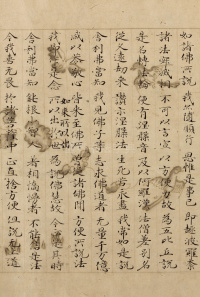 如諸佛所說 我亦隨順行 思惟是事已 即趣波羅奈
諸法寂滅相 不可以言宣 以方便力故 為五比丘說
是名轉法輪 便有涅槃音 及以阿羅漢 法僧差別名
從久遠劫來 讚示涅槃法 生死苦永盡 我常如是說
舍利弗當知 我見佛子等 志求佛道者 無量千萬億
咸以恭敬心 皆來至佛所 曾從諸佛聞 方便所說法
我即作是念 如來所以出 為說佛慧故 今正是其時
舍利弗當知 鈍根 者相憍慢者 不能信是法
今我喜無畏 於諸菩薩中 正直捨方便 但說無上道